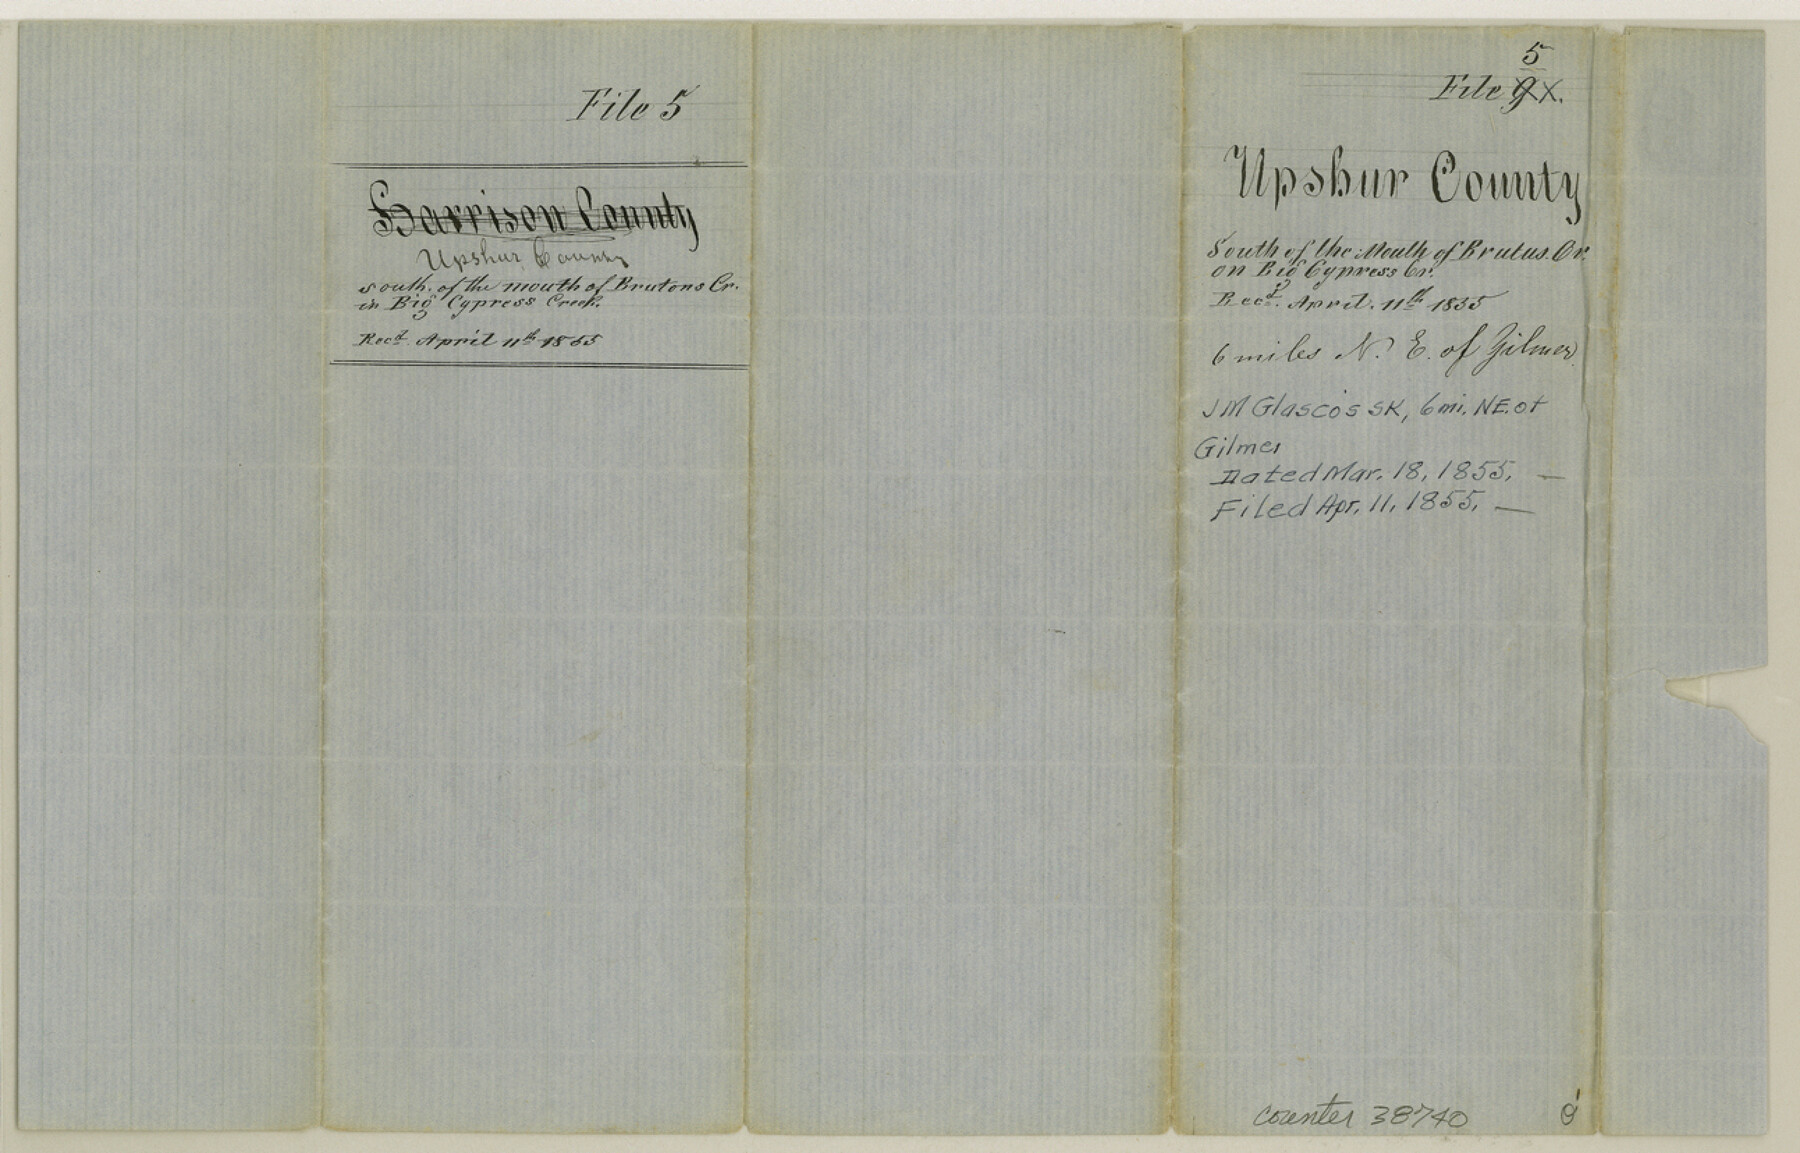 File 5
Harrison County
Upshur County
south. of the mouth of Brutons Cr.
in Big Cypress Creek.
Recd. April 11th 1855
5
File 9X.
Upshur County
South of the Mouth of Brutus Cr.
on Big Cypress Cr.
Recd. April. 11th 1855
6 miles N. E. of Gilmer
JM Glasco's SK, 6 mi. NE. of
Gilmer
Dated Mar. 18, 1855. —
Filed Apr. 11, 1855. —
counter 38740